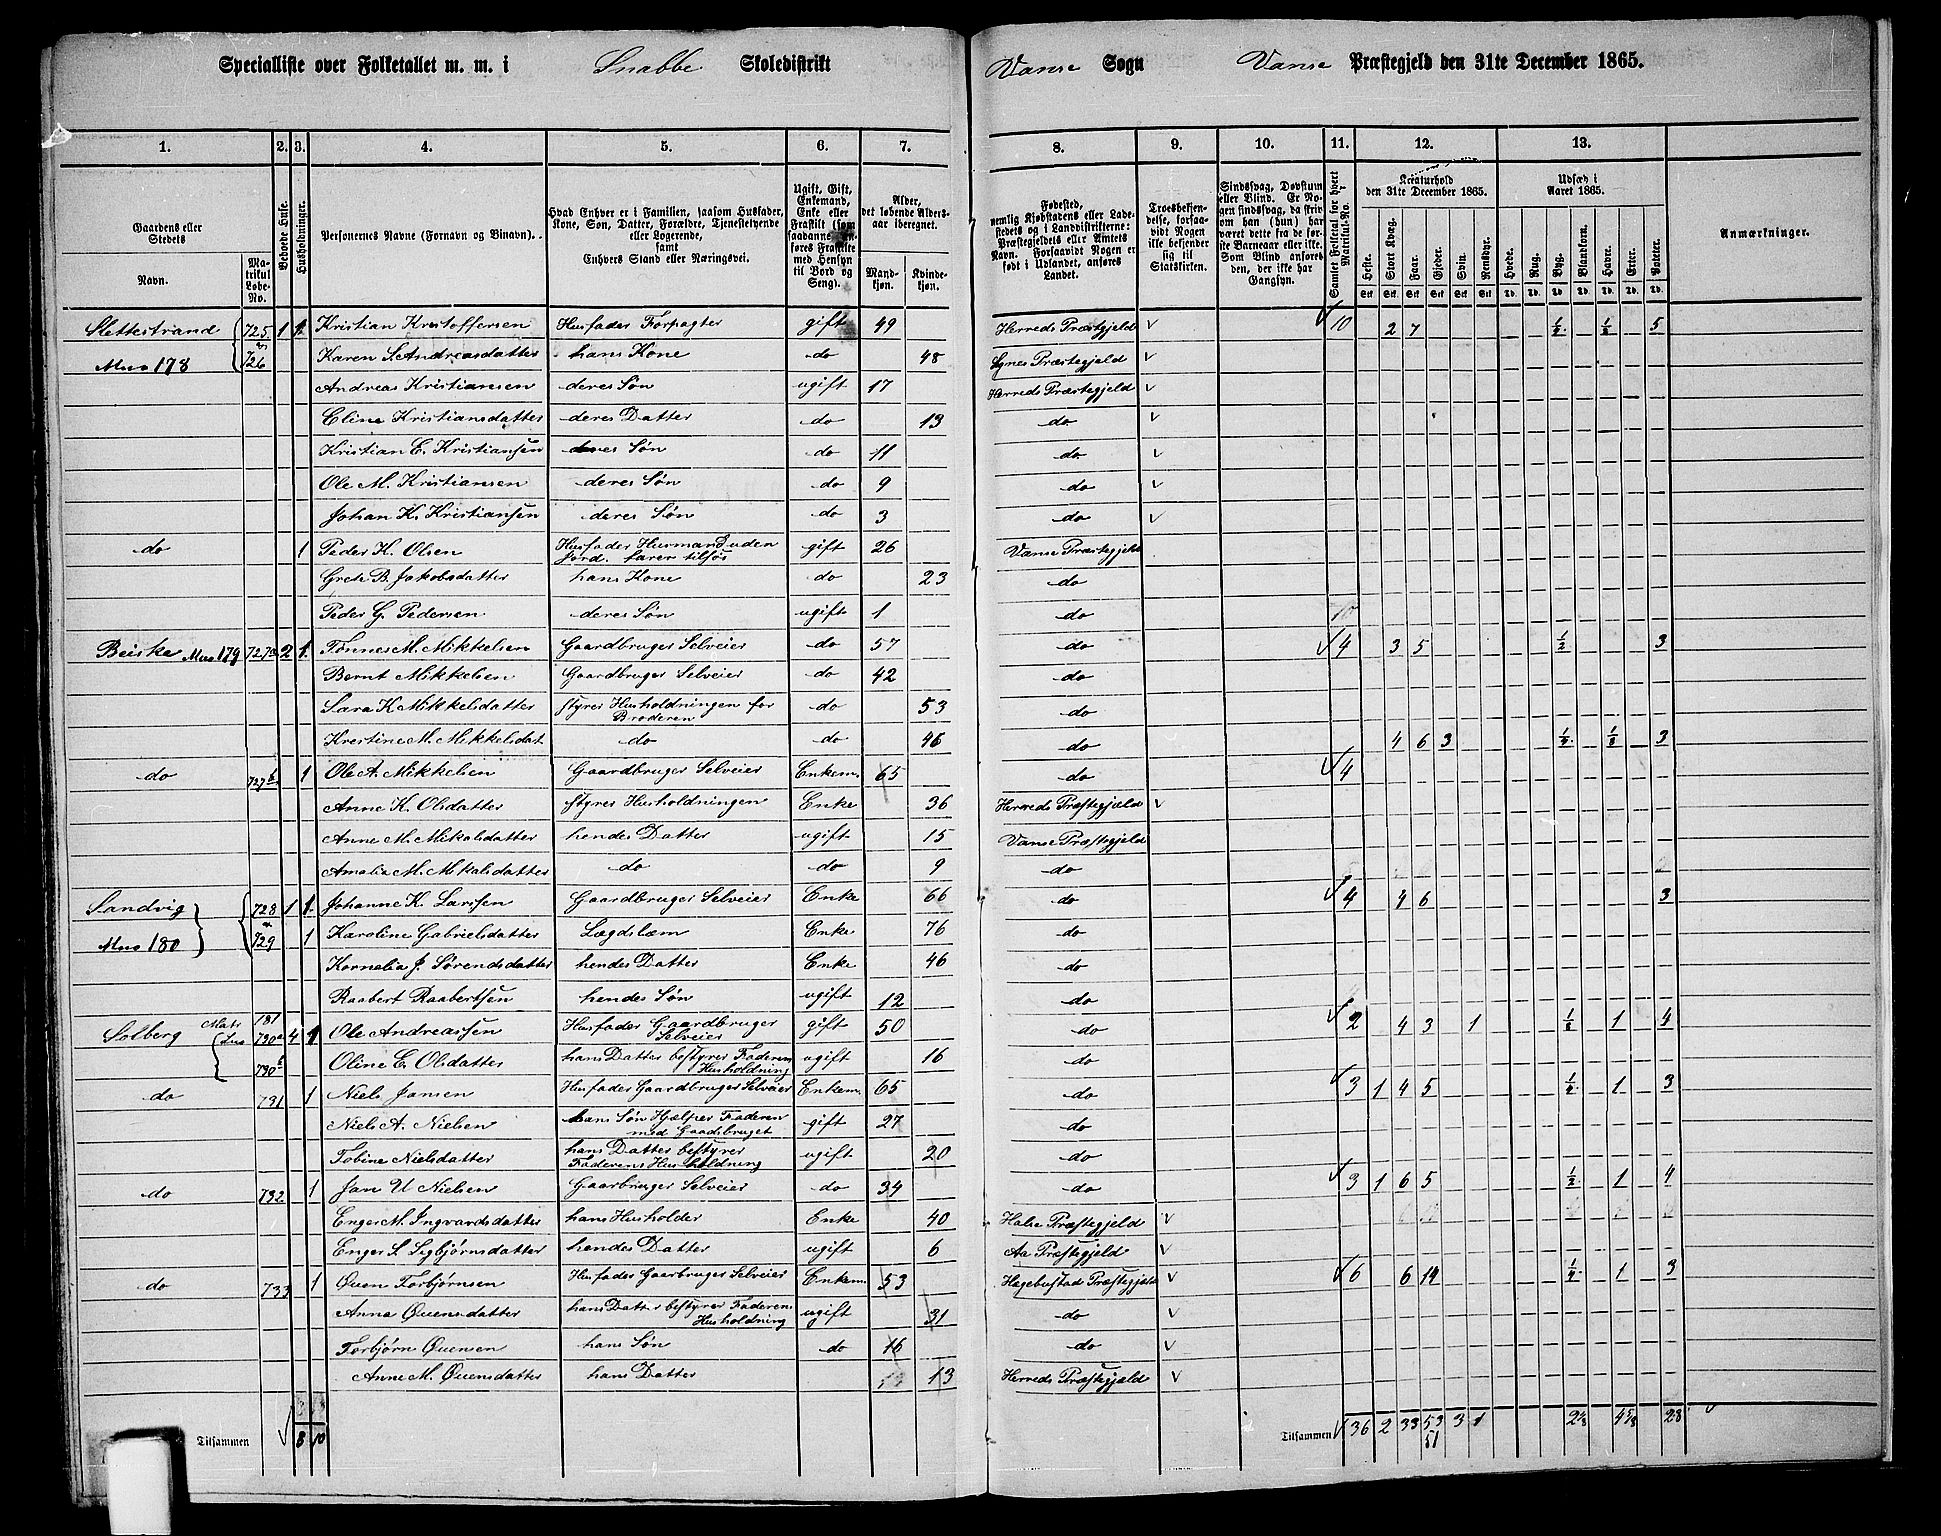 Specialliste over Folketallet m. m. i Snabbe Skoledistrikt Vanse Sogn Vanse Præstegjeld den 31te December 1865.
1. 2. 3. 4. 5. 6. 7. 8. 9. 10. 11. 12. 13.
Gaardens eller Stedets
Navn.
Matrikul Løbe-No.
Beboede Huse.
Husholdninger.
Personernes Navne (Fornavn og Binavn).
Hvad Enhver er i Familien, saasom Husfader, Kone, Søn, Datter, Forældre, Tjenestetyende eller Logerende, samt Enhvers Stand eller Næringsvei.
Ugift, Gift, Enkemand, Enke eller Fraskilt (som saadanne anføres Fraskilte med Hensyn til Bord og Seng).
Alder, det løbende Aldersaar iberegnet.
Mandkjøn. Kvindekjøn.
Fødested, nemlig Kjøbstadens eller Ladestedets og i Landdistrikterne: Præstegjeldets eller Amtets Navn. Forsaavidt Nogen er født i Udlandet, anføres Landet.
Troesbekjendelse, forsaavidt Nogen ikke bekjender sig til Statskirken.
Sindssvag, Døvstum eller Blind. Er Nogen sindssvag, da skrives om han (hun) har været dette fra de første Barneaar eller ikke. Som Blind anføres den, der ikke har Gangsyn.
Samlet Folketal for hvert Matrikul-No.
Kreaturhold den 31te December 1865.
Heste. Stort Kvæg. Faar. Gjeder. Svin. Rensdyr.
Udsæd i Aaret 1865.
Hvede. Rug. Byg. Blandkorn. Havre. Erter. Poteter.
Anmærkninger.
Slettestrand 725 1 1 Kristian Kristoffersen Husfader Forpagter gift 49 Herreds Præstgjeld 10 2 7 5
178 726 Karen S. Andreasdatter hans Kone do 48 Præstegjeld
Andreas Kristiansen deres Søn ugift 17 Herreds Præstegjeld
Eline Kristiansdatter deres Datter do 13 do
Kristian E. Kristiansen deres Søn do 11 do
Ole M. Kristiansen deres Søn do 9 do
Johan K. Kristiansen deres Søn do 3 do
do 1 Peder K. Olsen Husfader Husmand uden Jord. farer tilsøs gift 26 Vanse Præstegjeld
Grete B. Jakobsdatter hans Kone do 23 do
Peder G. Pedersen deres Søn ugift 1 do 10
Beiske 179 727a 2 1 Tønnes M. Mikkelsen Gaardbruger Selveier do 57 do 4 3 5 1/2 3
Bernt Mikkelsen Gaardbruger Selveier do 42 do
Sara K Mikkelsdatter styrer Husholdningen for Broderen do 53 do
Krestine M. Mikkelsdat do do 46 do 4 6 3 3
do 727b 1 Ole A. Mikkelsen Gaardbruger Selveier Enkem. 65 do 4
Anne K. Olsdatter styrer Husholdningen Enke 36 Herreds Præstegjæld
Anne M. Mikalsdatter hendes Datter ugift 15 Vanse Præstegjeld
Amalia M. Mikalsdatter do do 9 do
Sandvig 728 1 1 Johanne K. Larssen Gaardbruger Selveier Enke 66 do 4 4 6 3
180 729 1 Karoline Gabrielsdatter Lægdslæm Enke 76 do
Kornelia J. Sørendsdatter hendes Datter Enke 46 do
Raabert Raabertsen hendes Søn ugift 12 do
Solberg Matr 181 730a 4 1 Ole Andreassen Husfader Gaardbruger Selveier gift 50 do 2 4 3 1 1 4
730b Oline E. Olsdatter hans Datter bestyrer Faderens Husholdning ugift 16 do
do 731 1 Niels Jansen Husfader Gaardbruger Selveier Enkem. 65 do 3 1 4 5 1 3
Niels A. Nielsen hans Søn Hjælper Faderen med Gaardsbruget gift 27 do
Tobine Nielsdatter hans Datter bestyrer Faderens Husholdning ugift 20 do
do 732 1 Jan U Nielsen Gaarbruger Selveier do 34 do 3 1 6 5 1/2 1 4
Enger M. Ingvardsdatter hans Husholder Enke 40 Halse Præstegjeld
Enger S. Sigbjørnsdatter hendes Datter ugift 6 Aa Præstegjeld
do 733 1 Øuen Torbjørnsen Husfader Gaarbruger Selveier Enkem. 53 Hægebustad Præstegjeld 6 6 14 1/4 1 3
Anna Øuensdatter hans Datter bestyrer Faderens Husholdning ugift 31 do
Torbjørn Øuensen hans Søn do 16 do
Anne M. Øuensdatter hans Datter 13 Herreds Præstegjæld
Tilsammen 8 10 Tilsammen 36 2 33 53 3 1 28
51